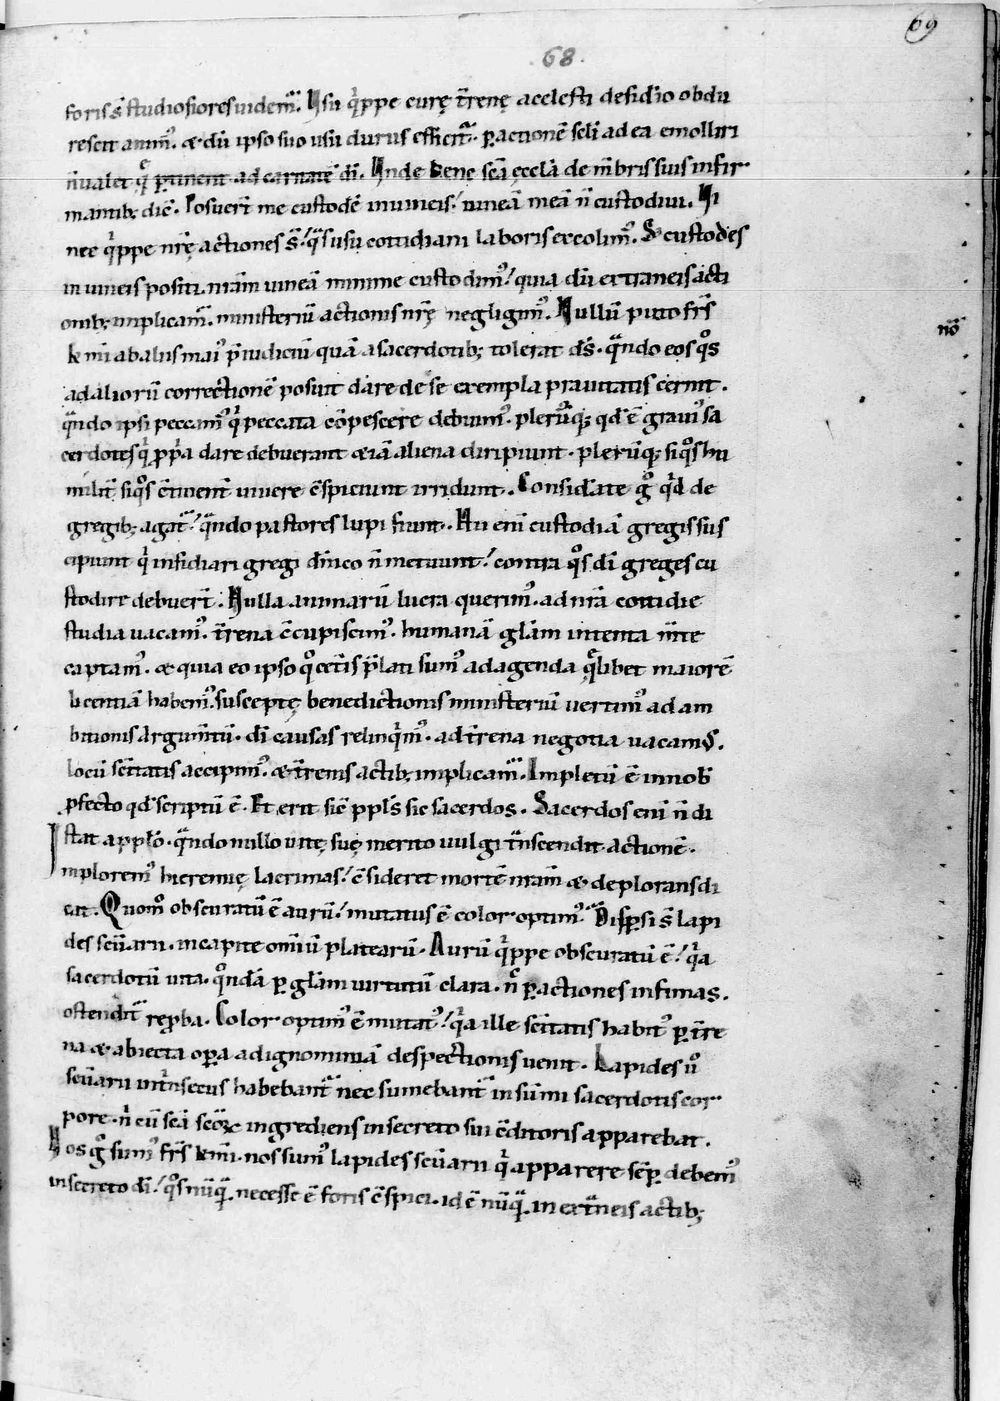 69
68.
foris s̄ studiosiores uidem̄. Usu q̇ppe curę t̄renę acelesti desidio obdu
rescit anim᷒. & dū ipso suo usu durus efficit̄. p̱ actionē sc̄li ad ea emolliri
n̄ ualet q̄ p̱tinent ad caritatē dī. Unde bene sc̄a ęccła de m̄bris suis infir
mantib; dic̄. Posuer̄t me custodē in uineis / uineā meā n̄ custodiui. Vi
neę q̇ppe nr̄ę actiones s̄ / q̄s usu cottidiani laboris excolim᷒. S; custodes
in uineis positi nr̄am uineā minime custodim᷒ / quia dū extraneis acti
onib; implicam̄. ministeriū actionis nr̄ę negligim᷒. Nullū puto fr̄s
nō
k̄mi ab aliis mai᷒ p̄iudiciū quā a sacerdotib; tolerat dš. q̄ndo eos q᷒s
ad aliorū correctionē posuit dare de se exempla prauitatis cernit.
q̄ndo ipsi peccam᷒ q̇ peccata cōpescere debuim᷒. plerūq; qđ ē graui᷒ sa
cerdotes q̇ pp̄a dare debuerant & iā aliena diripiunt. plerūq; si q᷒s hu
milit̄ si q᷒s c̄tinent̄ uiuere c̄spiciunt irridunt. Considerate g᷒ q̇d de
gregib; agat̄ / q̄ndo pastores lupi fiunt. Hii eni custodiā gregis sus
cipiunt q̇ insidiari gregi dn̄ico n̄ metuunt / contra q᷒s dī greges cu
stodire debuer̄t. Nulla animarū lucra querim᷒. ad nr̄a cottidie
studia uacam᷒. t̄rena c̄cupiscim᷒. humanā glām intenta m̄te
captam᷒. & quia eo ipso q᷒ cet̄is p̄lati sum᷒ ad agenda q̄libet maiorē
licentiā habem᷒. susceptę benedictionis ministeriū uertim᷒ ad am
bitionis argum̄tū. dī causas relinq̇m᷒. ad t̄rena negotia uacam᷒.
locū sc̄itatis accipim᷒. & t̄renis actib; implicam̄. Impletū ē in nob̄
p̱fecto qđ scriptū ē. Et erit sic̄ ppłs sic sacerdos. Sacerdos eni n̄ di
stat a ppło. q̄ndo nullo uitę suę merito uulgi t̄nscendit actionē.
Implorem᷒ hieremię lacrimas / c̄sideret mortē nr̄am & deplorans di
cat. Quom᷒ obscuratū ē aurū / mutatus ē color optim᷒. Disp̱si s̄ lapi
des sc̄uarii in capite om̄iū platearū. Aurū q̇ppe obscuratū ē / q̇a
sacerdotū uita. q᷒ndā p̱ glām uirtutū clara. n᷒ p̱ actiones infimas.
ostendit̄ rep̱ba. Color optim᷒ ē mutat᷒ / q̇a ille sc̄itatis habit᷒ p̱ t̄re
na & abiecta op̱a ad ignominiā despectionis uenit. Lapides u᷒
sc̄uarii int̄nsecus habebant̄ nec sumebant̄ in sūmi sacerdotis cor
pore. n̄ cū sc̄a sc̄oꝝ ingrediens in secreto sui c̄ditoris apparebat.
Nos g᷒ sum᷒ fr̄s k̄mi. nos sum᷒ lapides sc̄uarii q̇ apparere sēp̱ debem᷒
in secreto dī / q᷒s nūq̄. necesse ē foris c̄spici. id ē nūq̄. in ext̄neis actib;